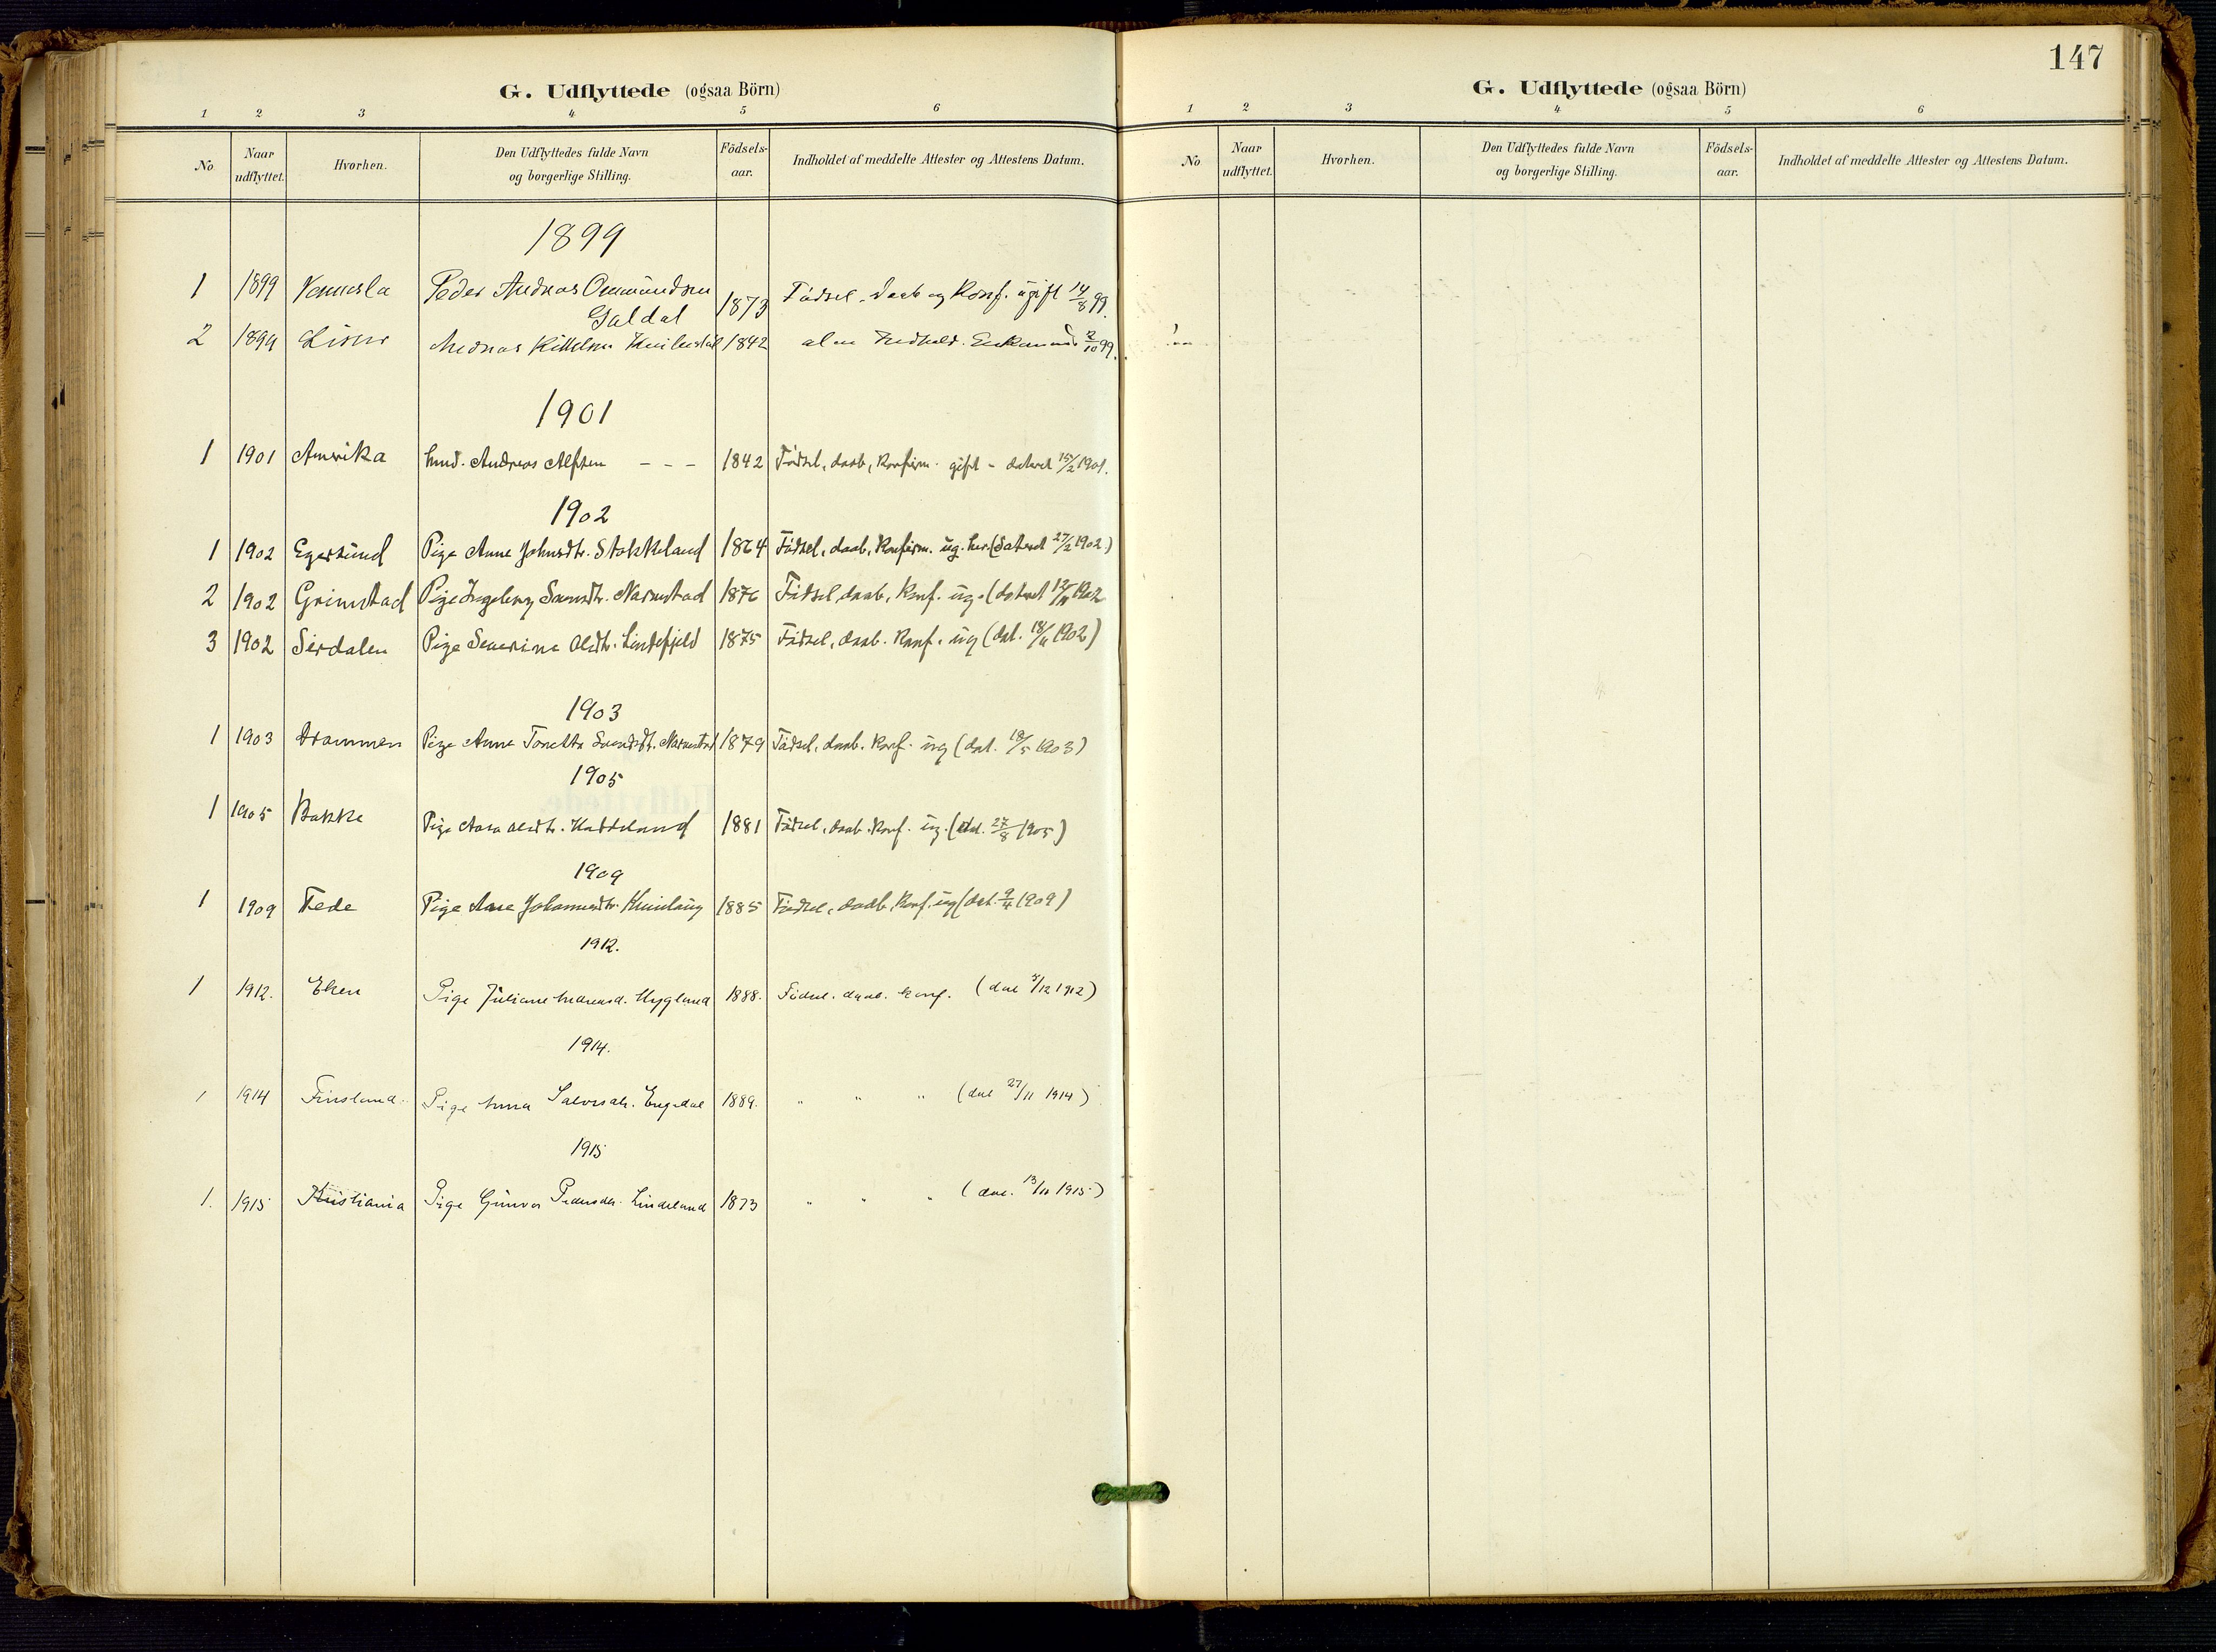 G. Udflyttede (ogsaa Börn)
1 2 3 4 5 6
No
Naar udflyttet.
Hvorhen.
Den Udflyttedes fulde Navn og borgerlige Stilling.
Födsels-aar.
Indholdet af meddelte Attester og Attestens Datum.
1899
1 1899 Vennesla Peder Andreas Ommundsen 1873 Födsel, daab og Konf. ugift 14/8 99.
Galdal
2 1899 Andreas 1842 2/10 99.
1901
1 1901 Amerika Andreas Alfsen - - - 1842 Födsel, daab, Konfirm. gift - dateret 15/2 1901.
1902
1 1902 Egersund Pige Anne Johnsdtr. Stokkeland 1864 Födsel, daab, Konfirm. ug. (dateret 27/2 1902)
2 1902 Grimstad Pige Ingeborg Narvestad 1876 Födsel, daab, Konf. ug. (dateret 12/11 1902
3 1902 Sirdalen Pige Severine Olsdtr. Lindefjeld 1875 Födsel, daab. Konf. ug (dat. 18/11 1902)
1903
1 1903 Drammen Pige Anne Tonetta Narvestad 1879 Födsel, daab. Konf. ug (dat. 18/5 1903)
1905
1 1905 Bakke Pige Aasa Olsdtr. Haddeland 1881 Födsel, daab. Konf. ug. (dat. 27/8 1905)
1909
1 1909 Fede Pige Ane Johannesdtr. 1885 Födsel, daab, Konf. ug (dat. 9/4 1909)
1912.
1 1912. Eken Pige Juliane Andreasd. 1888. Födsel. daab. konf. (dat 7/12 1912)
1914.
1 1914 Finsland. Pige Anna Salvesdtr. Engedal 1889. " " " (dat 27/11 1914)
1915
1. 1915 Kristiania Pige Gunvor Pedersdtr. Lindeland 1873 " " " (dat. 13/11 1915)
147
G. Udflyttede (ogsaa Börn)
1 2 3 4 5 6
No
Naar udflyttet.
Hvorhen.
Den Udflyttedes fulde Navn og borgerlige Stilling.
Födsels-aar.
Indholdet af meddelte Attester og Attestens Datum.